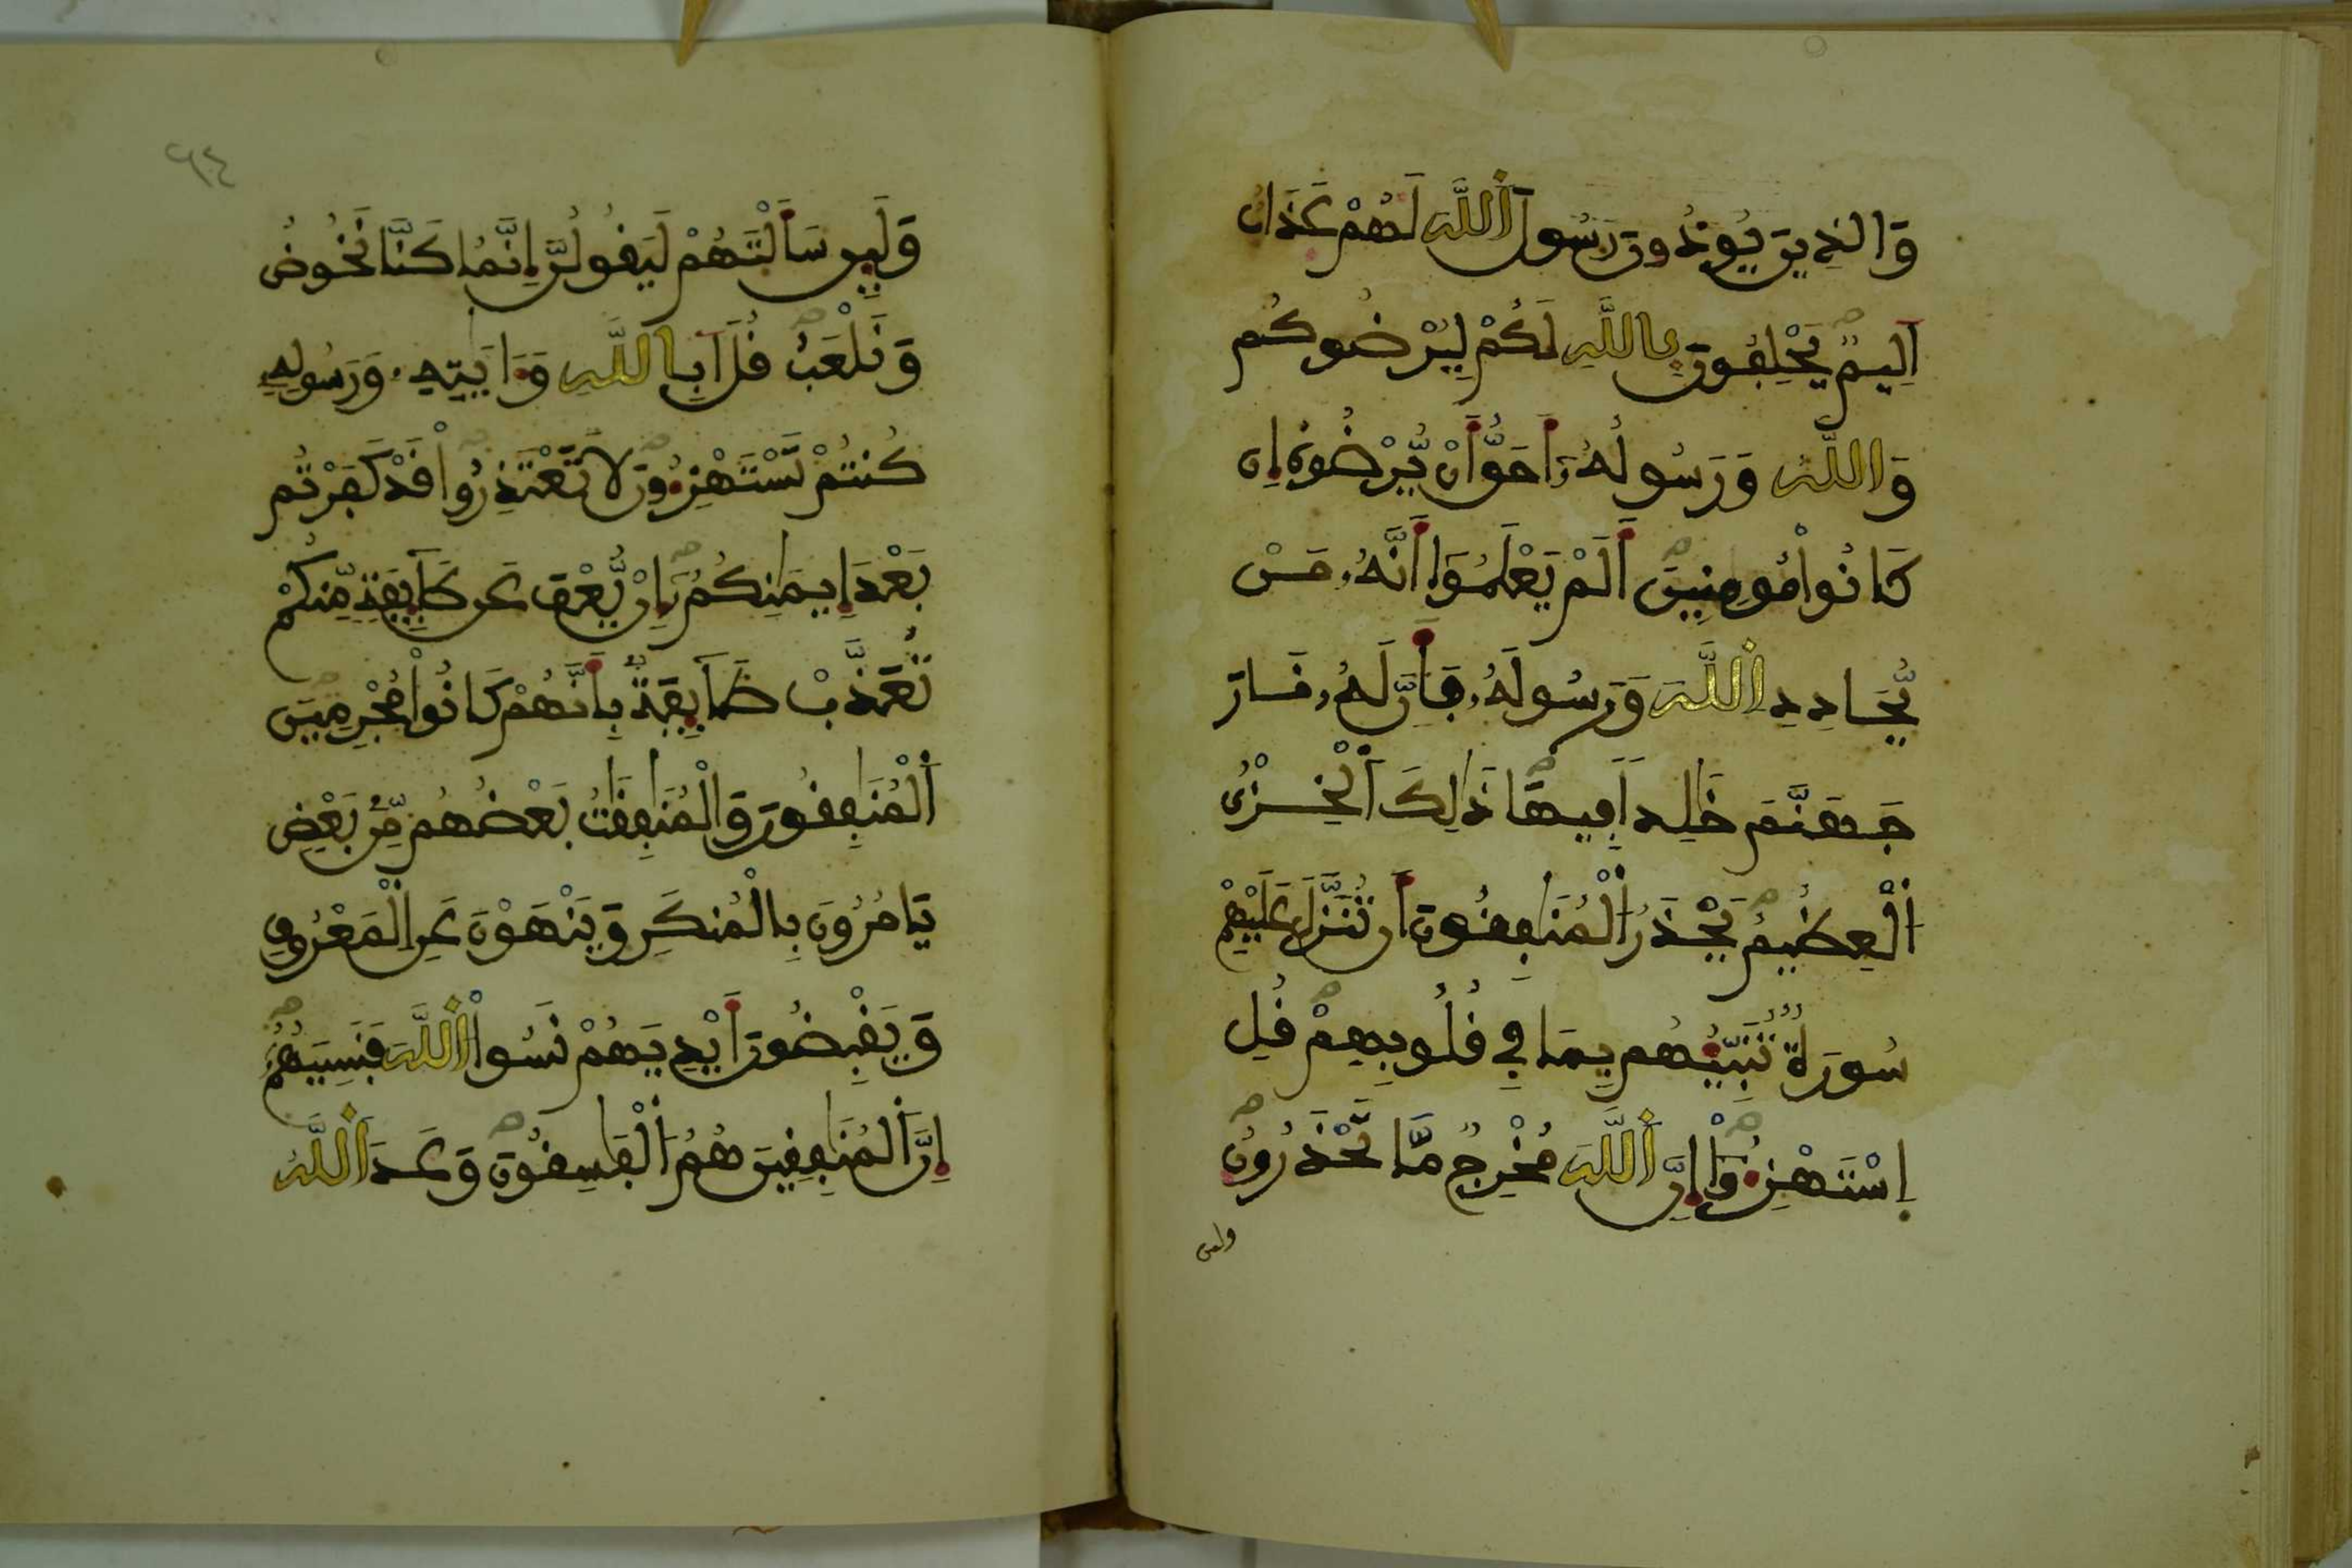 وَالذِينَ يُوذُونَ رَسُولَ اَ۬للَّهِ لَهُمْ عَذَابٌ
اَلِيمٌ يَحْلِفُونَ بِاللَّهِ لَكُمْ لِيُرْضُوكُمْ
وَاللَّهُ وَرَسُولُهُۥ أَحَقُّ أَنْ يُّرْضُوهُ إِن
كَانُواْ مُومِنِينَ أَلَمْ يَعْلَمُوٓاْ أَنَّهُۥ مَنْ
يُّحَادِدِ اِ۬للَّهَ وَرَسُولَهُۥ فَأَنَّ لَهُۥ نَارَ
جَهَنَّمَ خَٰلِداً فِيهَا ذَٰلِكَ اَ۬لْخِزْيُ
اُ۬لْعَظِيمُ يَحْذَرُ اُ۬لْمُنَٰفِقُونَ أَن تُنَزَّلَ عَلَيْهِمْ
سُورَةٌ تُنَبِّئُهُم بِمَا فِي قُلُوبِهِمْ قُلِ
اِسْتَهْزِءُوٓاْ إِنَّ اَ۬للَّهَ مُخْرِجٌ مَّا تَحْذَرُونَ
ولين
٦٤
وَلَئِن سَأَلْتَهُمْ لَيَقُولُنَّ إِنَّمَا كُنَّا نَخُوضُ
وَنَلْعَبُ قُلَ اَبِاللَّهِ وَءَايَٰتِهِۦ وَرَسُولِهِۦ
كُنتُمْ تَسْتَهْزِءُونَ لَا تَعْتَذِرُواْ قَدْ كَفَرْتُم
بَعْدَ إِيمَٰنِكُمُۥٓ إِنْ يُّعْفَ عَن طَآئِفَةٍ مِّنكُمْ
تُعَذَّبْ طَآئِفَةٌ بِأَنَّهُمْ كَانُواْ مُجْرِمِينَ
اَ۬لْمُنَٰفِقُونَ وَالْمُنَٰفِقَٰتُ بَعْضُهُم مِّنۢ بَعْضٍ
يَامُرُونَ بِالْمُنكَرِ وَيَنْهَوْنَ عَنِ اِ۬لْمَعْرُوفِ
وَيَقْبِضُونَ أَيْدِيَهُمْ نَسُواْ اُ۬للَّهَ فَنَسِيَهُمُۥٓ
إِنَّ اَ۬لْمُنَٰفِقِينَ هُمُ اُ۬لْفَٰسِقُونَ وَعَدَ اَ۬للَّهُ